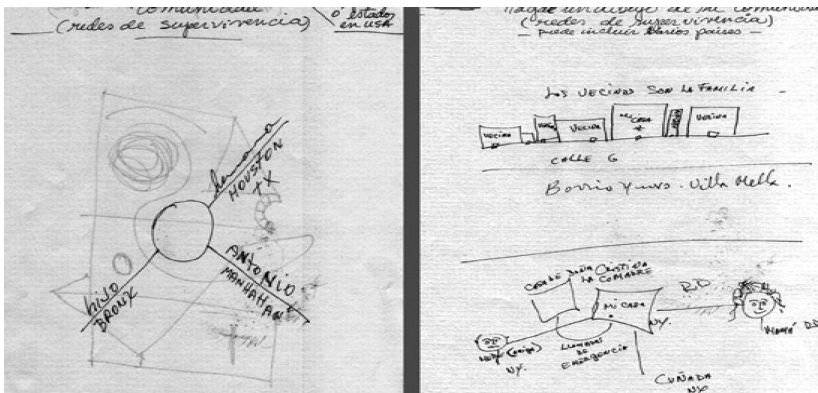 comunidad
(redes de supervivencia)
o estados
en USA
hermana
HOUSTON
TX
ANTONIO
MANHATTAN
hijo
BRONX
Haga un dibujo de su comunidad
(redes de supervivencia)
— puede incluir varios países —
LOS VECINOS SON LA FAMILIA —
VECINO
VECINA
MI CASA
VECINA
CALLE 6
Villa Mella.
CASA DE DOÑA CRISTINA
LA COMADRE
MI CASA
NY.
RD
MAMÁ RD
(amiga)
NY.
LLAMADAS
DE
EMERGENCIA
CUÑADA
NY